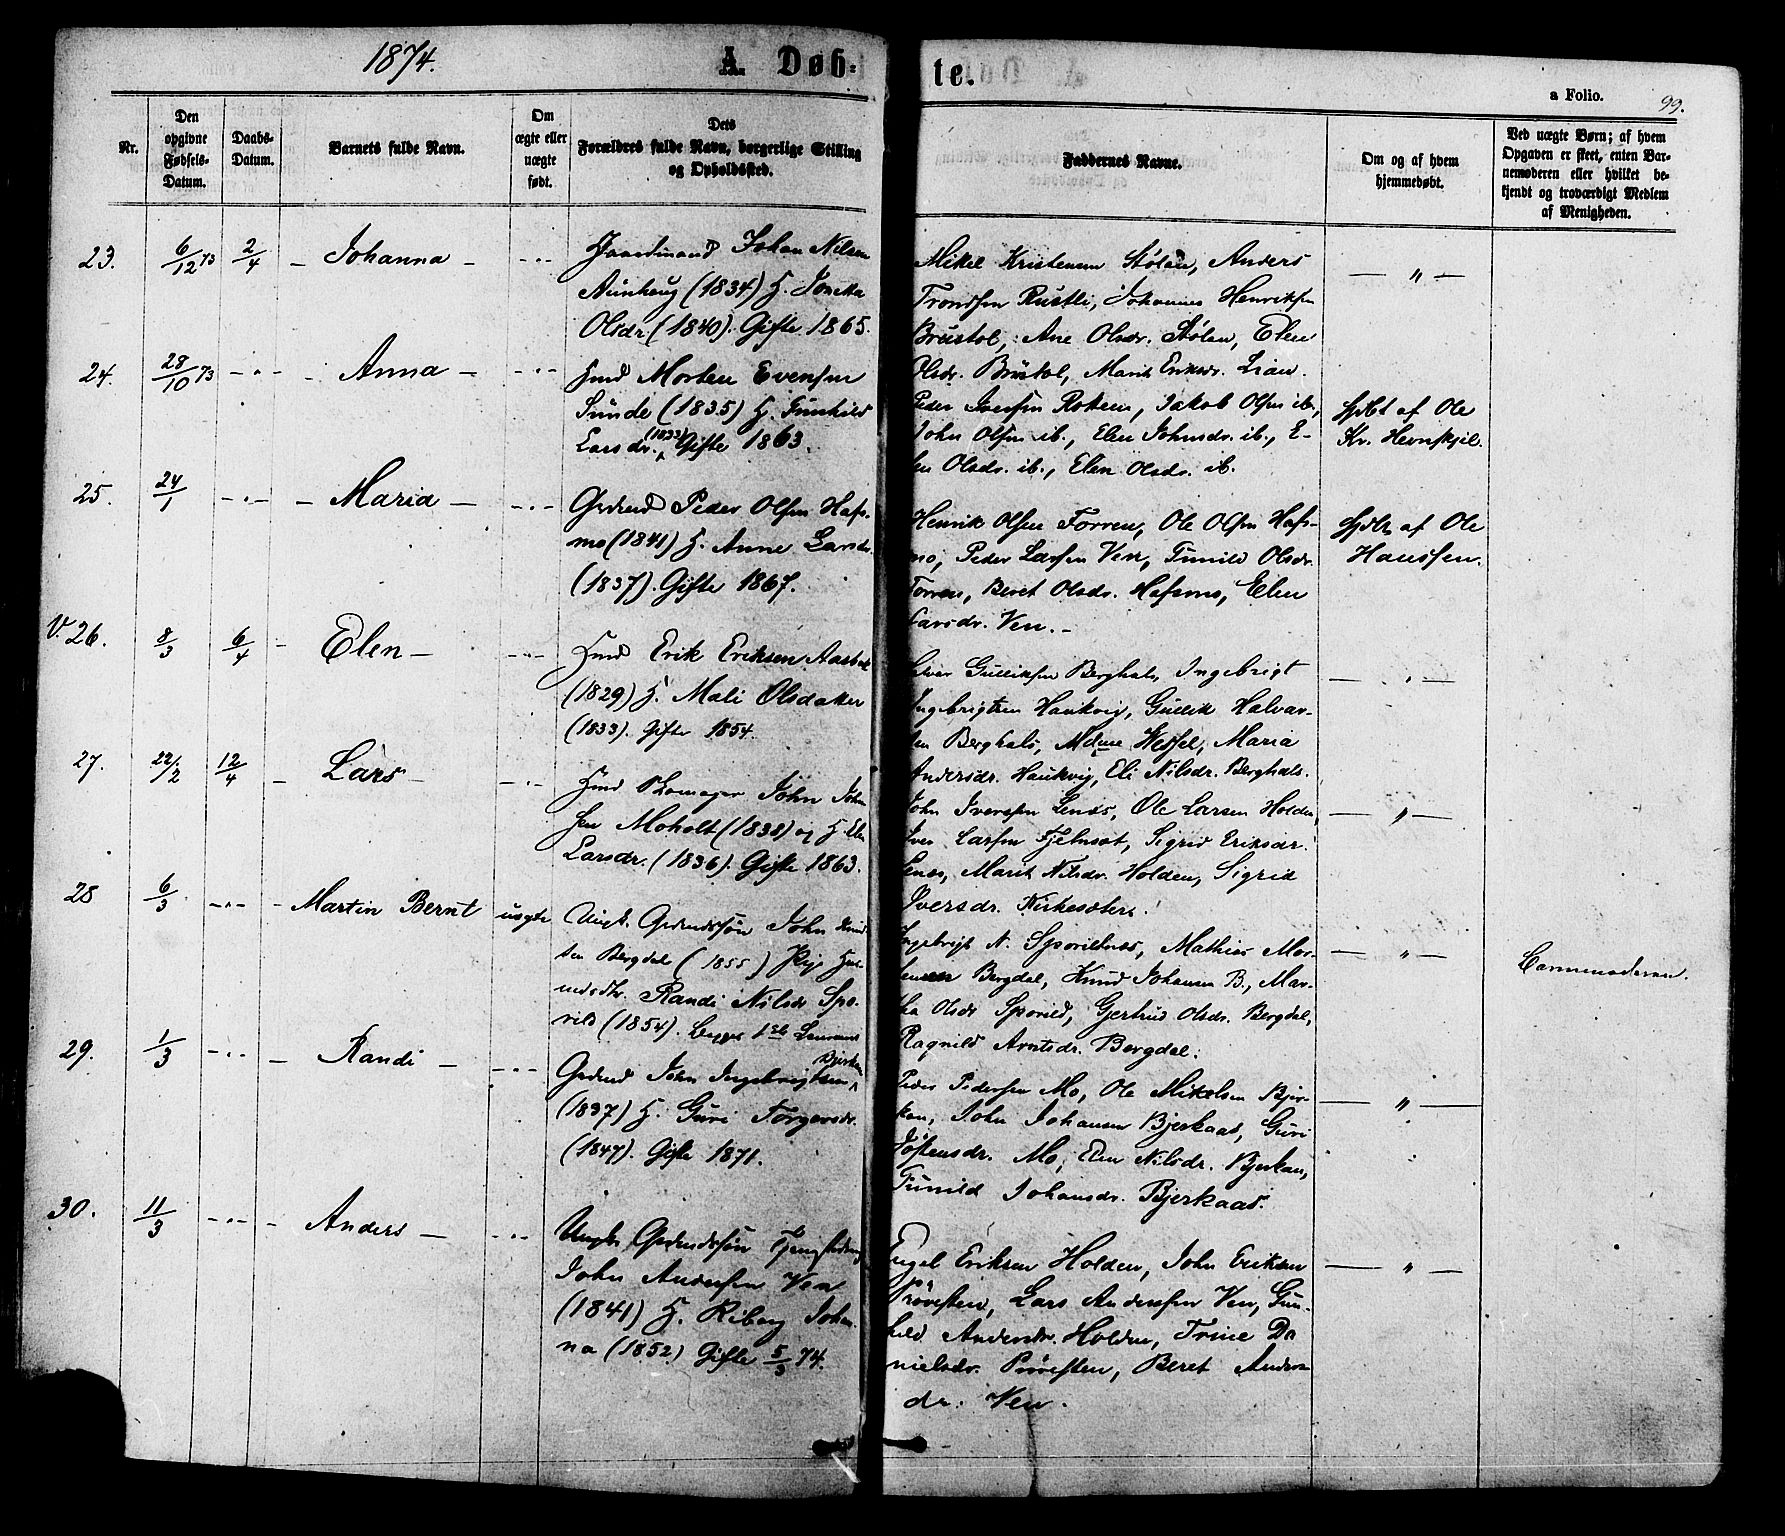 1874.
A. Døb-
te.
a Folio.
99.
Nr.
Den
opgivne
Fødsels-
Datum.
Daabs-
Datum.
Barnets fulde Navn.
Om
ægte eller
uægte
født.
Dets
Forældres fulde Navn, borgerlige Stilling
og Opholdssted.
Faddernes Navne.
Om og af hvem
hjemmedøbt.
Ved uægte Børn; af hvem
Opgaven er skeet, enten Bar-
nemoderen eller hvilket be-
kjendt og troværdigt Medlem
af Menigheden.
23.
6/12 73
2/4
Johanna
Gaardmand Johan Nilsen
Aunhaug (1834) H.
Olsdr. (1840). Gifte 1865.
Mikel Kristensen Stølan, Anders
Trondsen Rustli, Johannes Henriksen
Brustol, Ane Olsdr. Stølen, Elen
Olsdr. Brustol, Marit Eriksdr. Lian.
24.
28/10 73
Anna
Hmd Morten Evensen
Sunde (1835) H. Gunhild
Larsdr. (1833) Gifte 1863.
Peder Iversen Roken, Jakob Olsen ib.,
John Olsen ib., Elen Johnsdr. ib., E-
len Olsdr. ib., Elen Olsdr. ib.
Hjdbt af Ole
Kr. Hevnskjel.
25.
24/1
Maria
Grdmd Peder Olsen Hafs-
mo (1841) H. Anne Larsdr.
(1837). Gifte 1867.
Henrik Olsen Forren, Ole Olsen Hafs-
mo, Peder Larsen Ven, Gunild Olsdr.
Forren, Beret Olsdr. Hafsmo, Elen
Larsdr. Ven.
Hjdbt af Ole
Hanssen.
V. 26.
8/3
6/4
Elen
Hmd Erik Eriksen Aasbak
(1829) H. Mali Olsdatter
(1833). Gifte 1854.
Halvor Gulliksen Berghals, Ingebrigt
Ingebrigtsen Haukvig, Gullik Halvor-
sen Berghals, Mdme Wessel, Maria
Andersdr. Haukvig, Eli Nilsdr. Berghals.
27.
22/2
12/4
Lars
Hmd Skomager John John-
sen Moholt (1838) og H. Elen
Larsdr. (1836). Gifte 1863.
John Iversen Lenes, Ole Larsen Holden,
Iver Larsen Fjelnset, Sigrid Eriksdr.
Lenes, Marit Nilsdr. Holden, Sigrid
Iversdr. Kirkesæter.
28
6/3
Martin Bernt
uægte
Ungk. Grdmdssøn John Knud-
sen Bergdal (1855) Pige Hus-
mdsdtr. Randi Nilsdr Spo-
rild (1854). Begges 1ste
Ingebrigt N. Sporildnes, Mathias Mor-
tensen Bergdal, Knud Johansen B., Mar-
tha Olsdr Sporild, Gjertrud Olsdr. Bergdal,
Ragnild Arntsdr. Bergdal.
Barnemoderen.
29.
1/3
Randi
Grdmd John Ingebrigtsen Bjerkan
(1837) H. Guri Torgersdr.
(1847). Gifte 1871.
Peder Pedersen Mo, Ole Mikelsen Bjer-
kan, John Johansen Bjerkaas, Guri
Jostensdr. Mo, Elen Nilsdr. Bjerkan,
Gunild Johansdr. Bjerkaas.
30.
11/3
Anders
Ungk. Grdmdssøn
John Andersen Ven
(1841) H. Riborg Johan-
na (1852) Gifte 5/3 74.
Engel Eriksen Holden, John Eriksen
Prøvesten, Lars Andersen Ven, Gun-
hild Andersdr. Holden, Trine Da
nielsdr. Prøvesten, Beret Anders
dr. Ven.